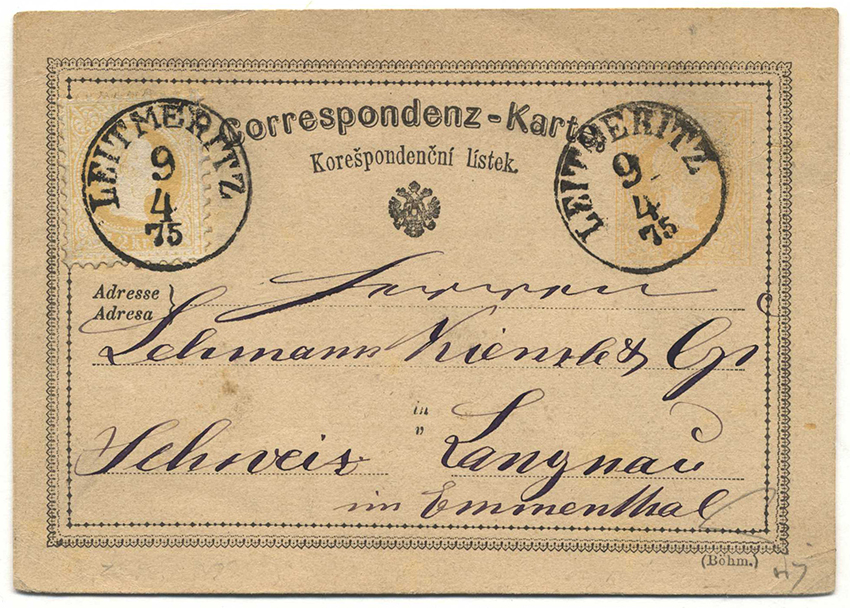 Correspondenz-Karte
Korešpondenční lístek.
LEITMERITZ
9
4
75
LEITMERITZ
9
4
75
2 kr
Adresse
Adresa
Herren
Lehmann Kienzle & Cp
in
v
Schweiz Langnau
im Emmenthal
(Böhm.)